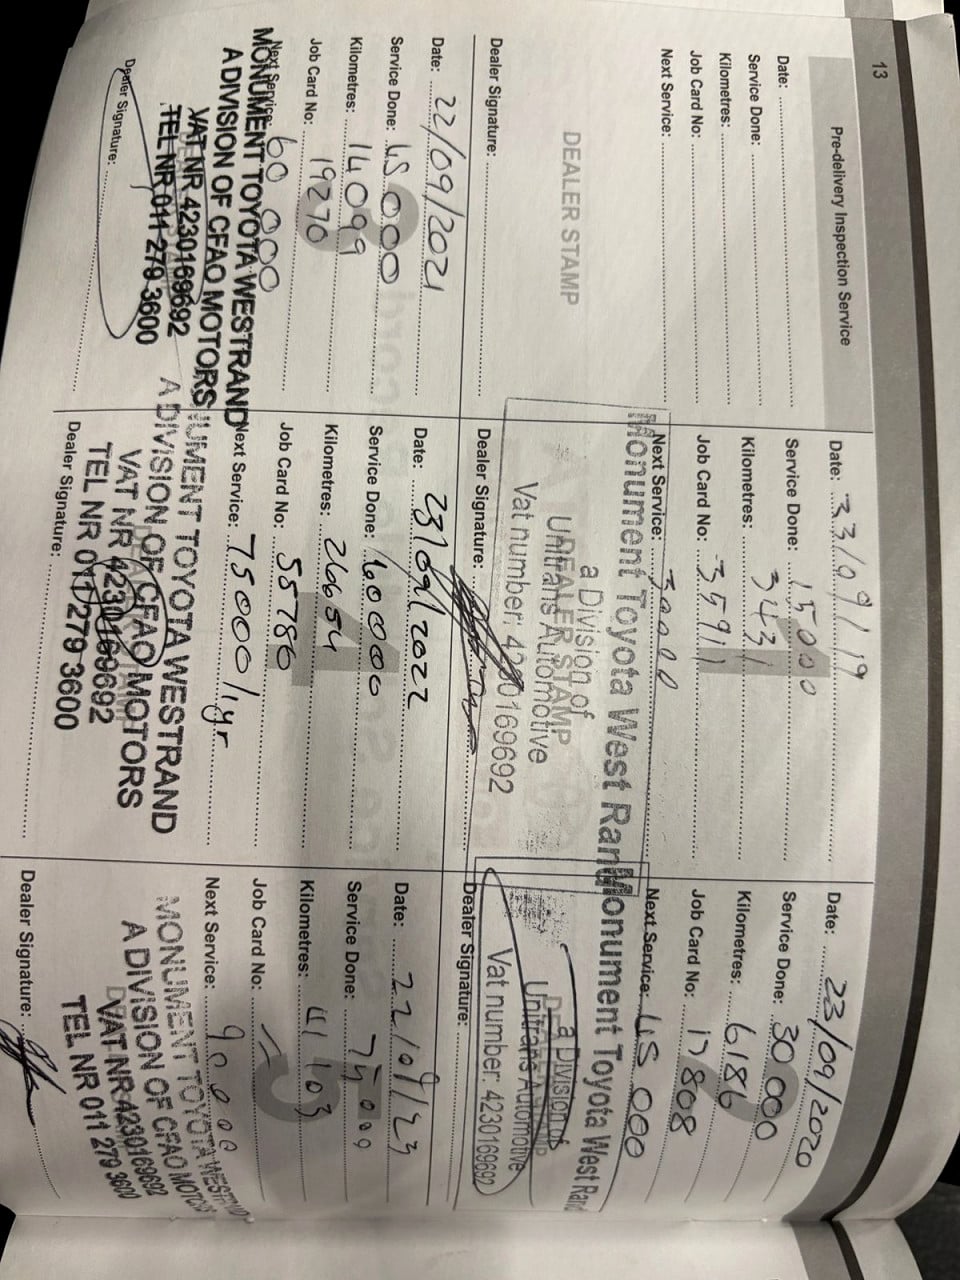 13
Pre-delivery Inspection Service
Date:
Service Done:
Kilometres:
Job Card No:
Next Service:
DEALER STAMP
Dealer Signature:
Date: 23/09/19
Service Done: 15000
Kilometres: 3431
Job Card No: 35911
Next Service: 30000
Monument Toyota West Rand
a Division of
Unitrans Automotive
DEALER STAMP
Vat number: 4230169692
Dealer Signature:
Date: 23/09/2020
Service Done: 30 000
Kilometres: 6186
Job Card No: 17808
Next Service: 45 000
Monument Toyota West Rand
a Division of
Unitrans Automotive
Vat number: 4230169692
Dealer Signature:
Date: 22/09/2021
Service Done: 45 000
Kilometres: 14099
Job Card No: 19270
Next Service: 60 000
MONUMENT TOYOTA WESTRAND
A DIVISION OF CFAO MOTORS
VAT NR 4230169692
TEL NR 011 279 3600
Dealer Signature:
Date: 23/09/2022
Service Done: 60000
Kilometres: 26654
Job Card No: 55786
Next Service: 75000/1yr
MONUMENT TOYOTA WESTRAND
A DIVISION OF CFAO MOTORS
VAT NR 4230169692
TEL NR 011 279 3600
Dealer Signature:
Date: 22/09/23
Service Done: 75000
Kilometres: 41103
Job Card No:
Next Service: 90000
MONUMENT TOYOTA WESTRAND
A DIVISION OF CFAO MOTORS
VAT NR 4230169692
TEL NR 011 279 3600
Dealer Signature: